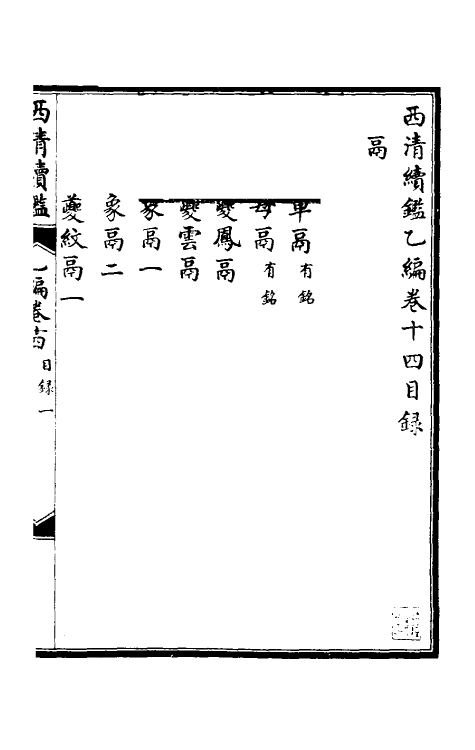 西清續鑑乙編卷十四目録
鬲
單鬲 有銘
母鬲 有銘
夔鳳鬲
夔雲鬲
象鬲一
象鬲二
夔紋鬲一
西清續鑑 乙編卷十四 目録 一